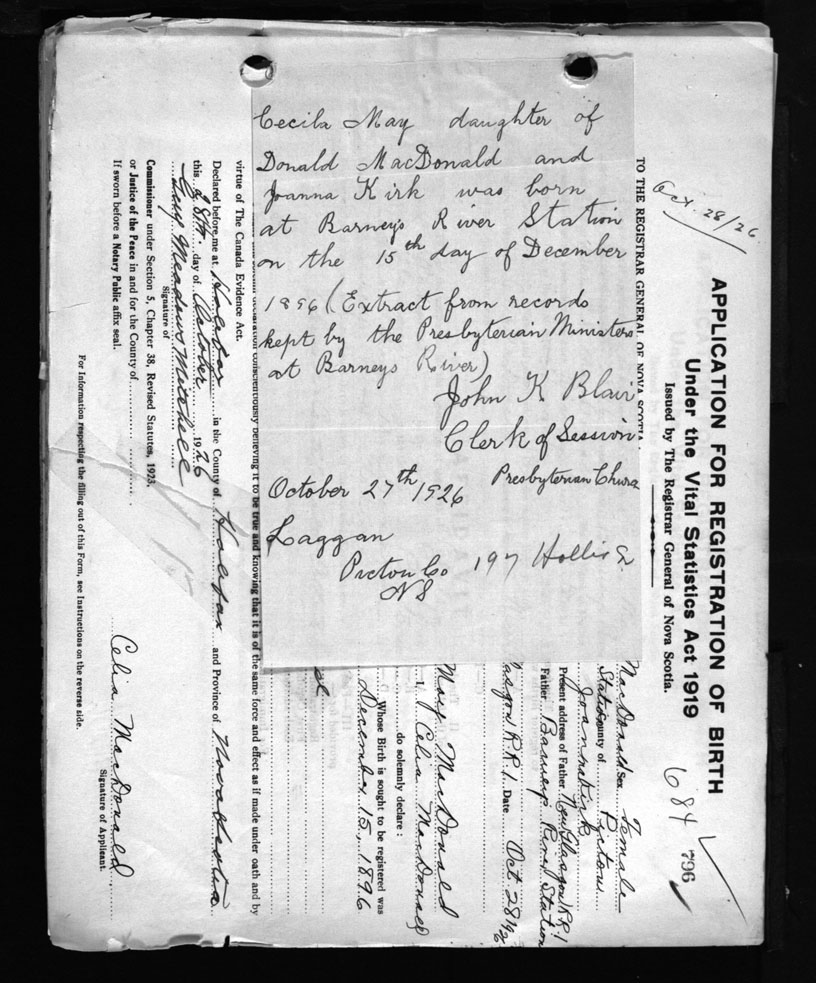 Cecila May daughter of
Donald MacDonald and
Joanna Kirk was born
at Barney's River Station
on the 15th day of December
1896 (Extract from records
kept by the Presbyterian Ministers
at Barneys River)
John K Blair
Clerk of Session
Presbyterian Church
October 27th 1926
Laggan
Pictou Co
NS
197 Hollis
Oct. 28/26
APPLICATION FOR REGISTRATION OF BIRTH
Under the Vital Statistics Act 1919
Issued by The Registrar General of Nova Scotia.
684
796
TO THE REGISTRAR GENERAL OF NOVA SCOTIA.
MacDonald Sex Female
Station County of Pictou
Joanna Kirk
Present address of Father New Glasgow R.R.1
Father Barneys River Station
R.R.1. Date Oct. 28
May MacDonald
I Celia MacDonald
do solemnly declare:
Whose Birth is sought to be registered was
December 15, 1896
declaration conscientiously believing it to be true and knowing that it is of the same force and effect as if made under oath and by
virtue of The Canada Evidence Act.
Declared before me at Halifax in the County of Halifax and Province of Nova Scotia
this 28th. day of October 1926
Guy Meadows Mitchell
Signature of
Commissioner under Section 5, Chapter 38, Revised Statutes, 1923.
or Justice of the Peace in and for the County of
If sworn before a Notary Public affix seal.
Celia MacDonald
Signature of Applicant.
For Information respecting the filling out of this Form, see Instructions on the reverse side.